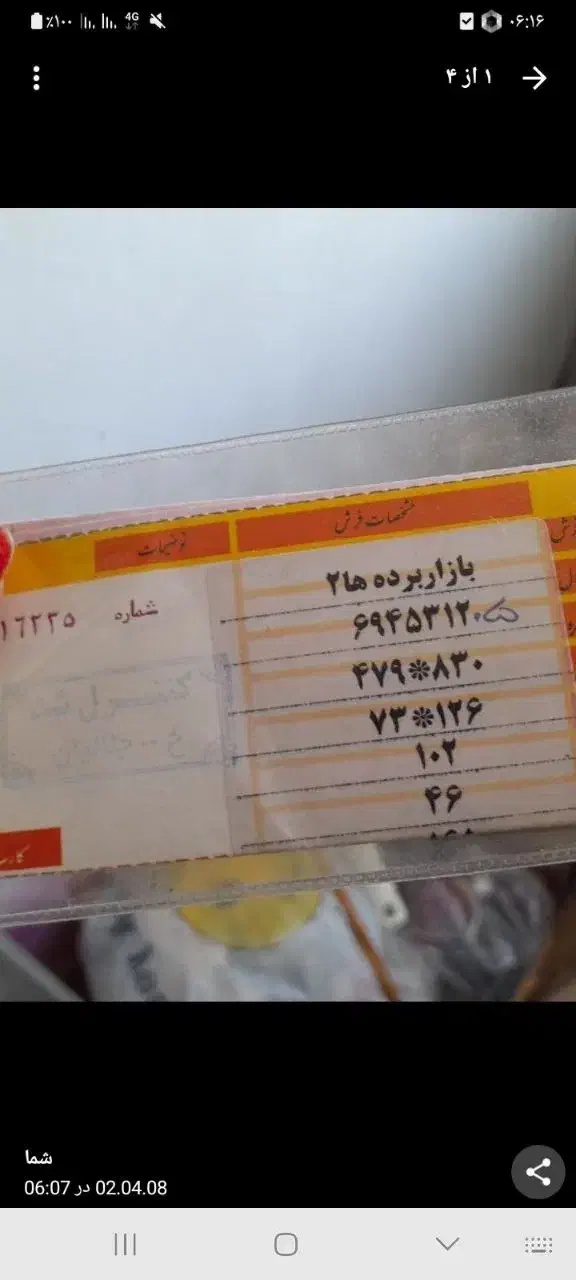 ٪۱۰۰ 4G ۰۶:۱۶
۱ از ۴
مشخصات فرش
توضیحات
بازار برده ها۲
۶۹۴۵۳۱۲۰
شماره ۱۶۲۳۵
۴۷۹*۸۳۰
کنترل شد
۷۳*۱۲۶
۱۰۲
۴۶
شما
02.04.08 در 06:07